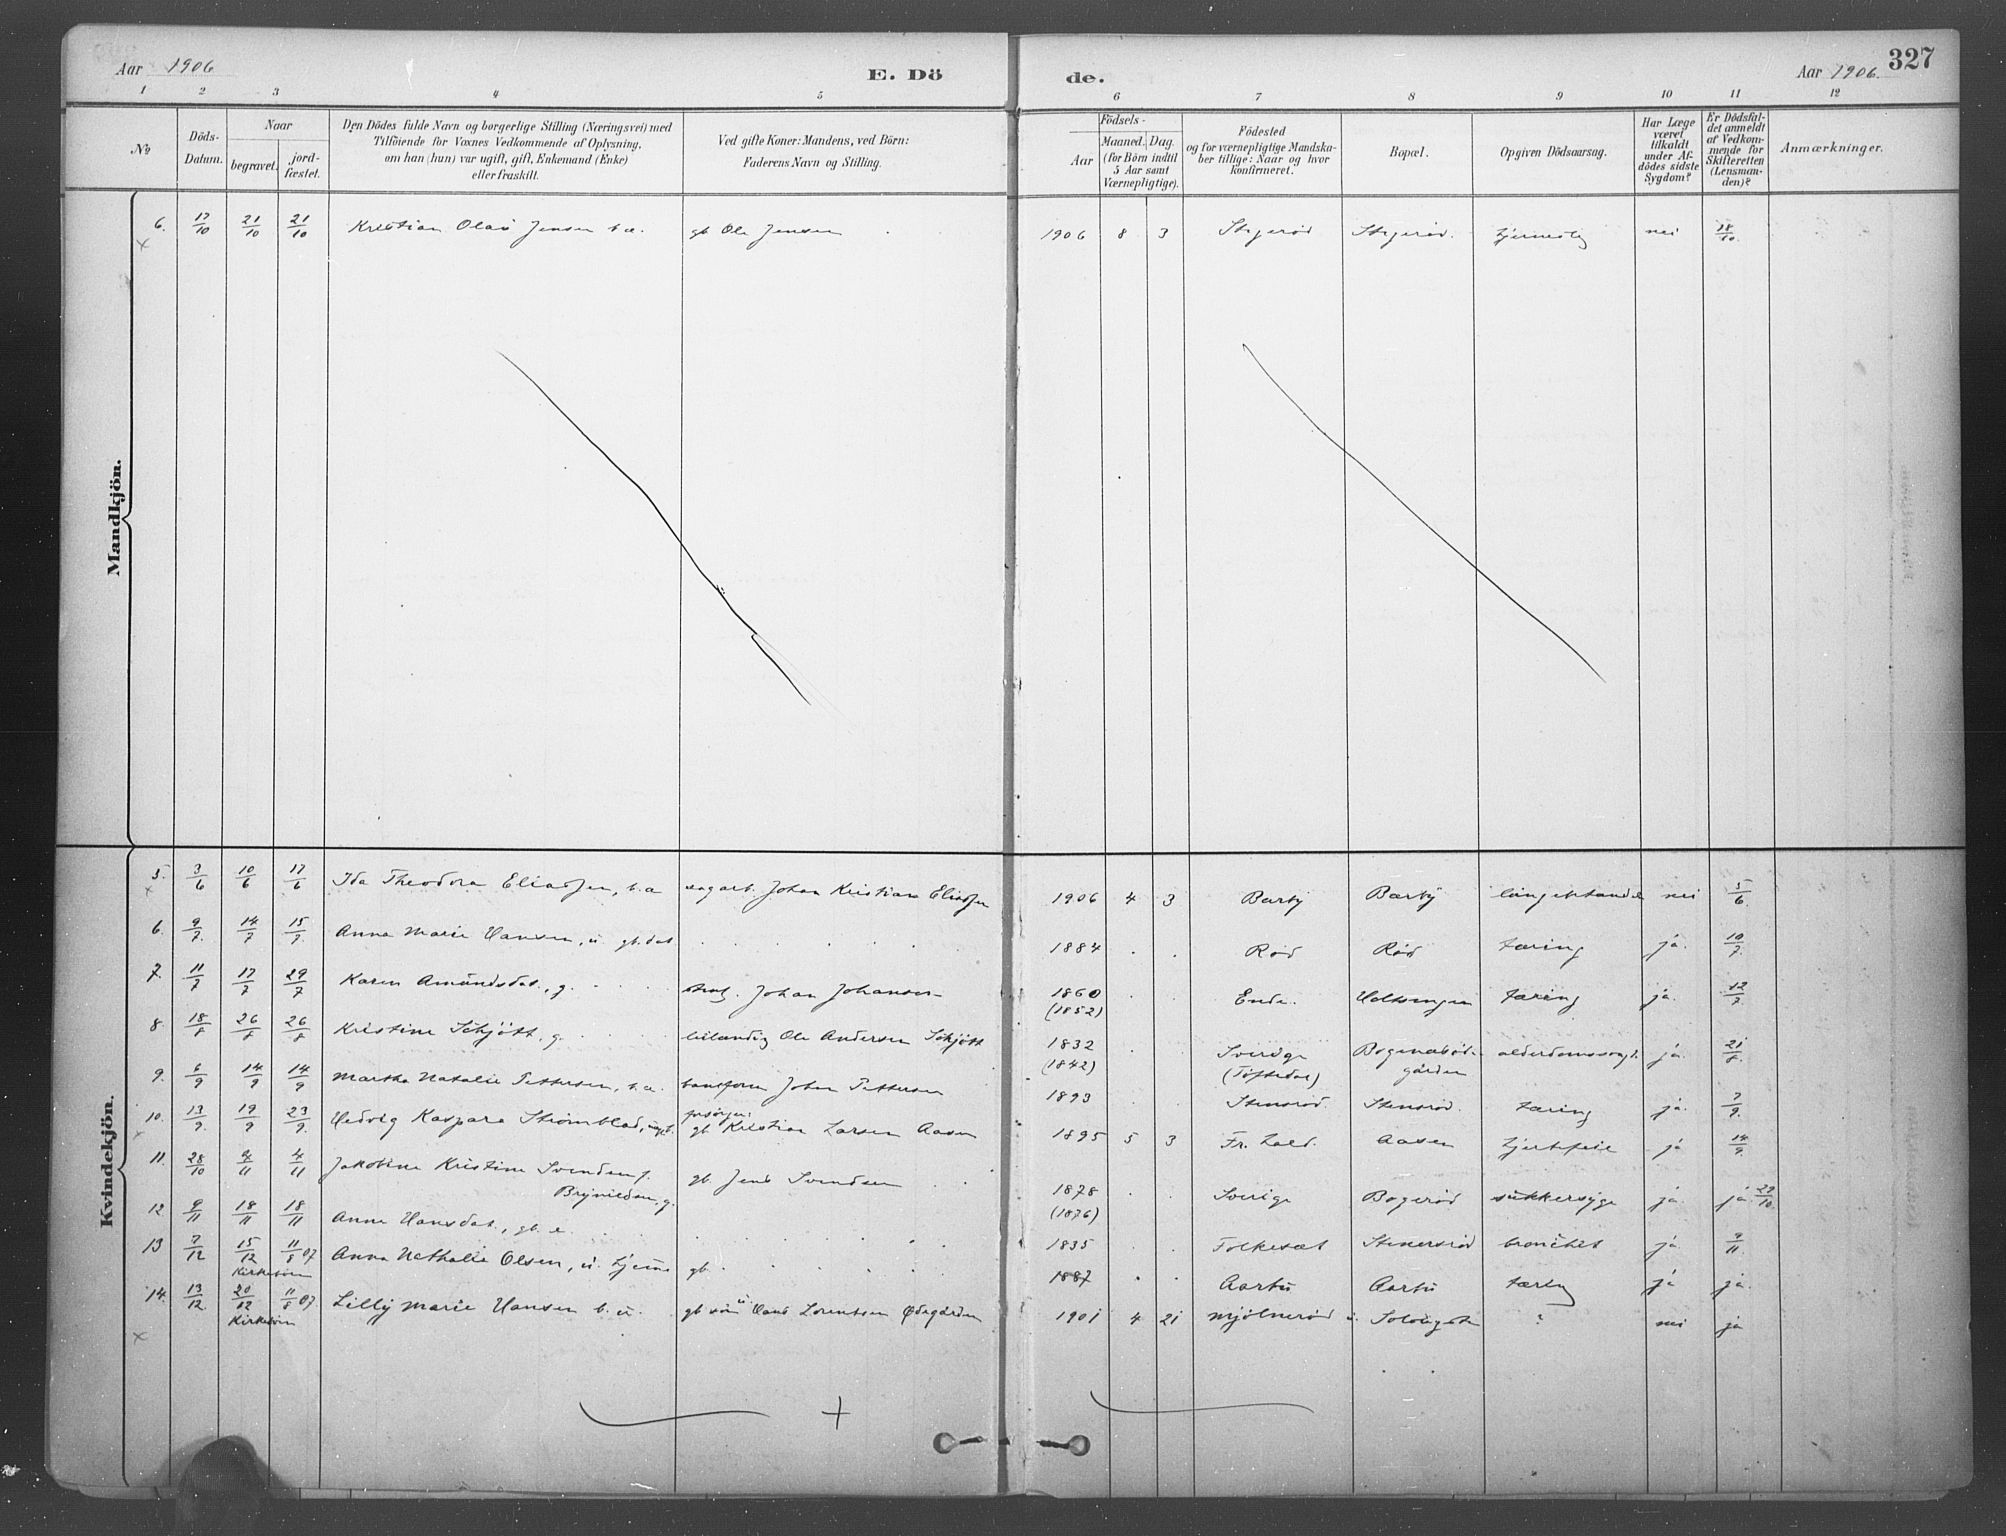 Aar 1906 E. Dö de. Aar 1906. 327
1 2 3 4 5 6 7 8 9 10 11 12
No
Döds-Datum.
Naar
begravet.
jord-fæstet.
Den Dödes fulde Navn og borgerlige Stilling (Næringsvei) med
Tilföiende for Voxnes Vedkommende af Oplysning,
om han (hun) var ugift, gift, Enkemand (Enke)
eller fraskilt.
Ved gifte Koner: Mandens, ved Börn:
Faderens Navn og Stilling.
Födsels-
Aar
Maaned. Dag.
(for Börn indtil
5 Aar samt
Værnepligtige).
Födested
og for værnepligtige Mandska-
ber tillige: Naar og hvor
konfirmeret.
Bopæl.
Opgiven Dödsaarsag.
Har Læge
været
tilkaldt
under Af-
dödes sidste
Sygdom?
Er Dödsfal-
det anmeldt
af Vedkom-
mende for
Skifteretten
(Lensman-
den)?
Anmærkninger.
Mandkjön.
6. 17/10 21/10 21/10 Kristian Olaus Jensen b.a. gb. Ole Jensen 1906 8 3 nei 18/10.
Kvindekjön.
5. 3/6 10/6 17/6 Ida Theodora Eliassen, b.a Johan Kristian Eliassen 1906 4 3 Barby Barby nei 5/6.
6. 9/7. 14/7 15/7. Anna Marie Hansen, u. gb. dat. 1884 . . Röd Röd tæring ja. 10/7.
7. 11/7 17/7 29/7 Karen Amundsdat., g. Johan Johansen 1860 (1852) Ende. Holtsengen tæring ja. 12/7.
8. 18/8 26/8 26/8 Kristine Schjött, g. leilænding Ole Andersen Schjött 1832 (1842) Sverige (Töftedal) gården ja. 21/8.
9. 6/9 14/9 14/9 Martha Natalie Pettersen, b.a. baneform Johan Pettersen 1893 Stensröd. Stensröd. tæring ja. 7/9.
10. 13/9. 19/9 23/9. Hedvig Kaspara Strömblad, forsörger: gb. Kristian Larsen Aasen 1895 5 3 Fr. hald. Aasen hjertfeil ja 14/9.
11. 28/10 4/11 4/11 Jakobine Kristine Svendsen f. Brynildsen, g. gb. Jens Svendsen 1878 (1876) Sverige Bogeröd sukkersyge ja. ja. 29/10.
12. 9/11 18/11 18/11 Anne Hansdat., gb. e. 1835 Folkesæt Stenersröd bronchit ja. 9/11.
13 7/12 15/12 Kirkebön 11/8 07 Anna Nathalie Olsen, u. hjemme gb. 1887 Aarbu Aarbu tæring ja ja.
14. 13/12. 20/12 Kirkebön 11/8 07. Lilly Marie Hansen b. u. gb. sön u. Hans Lorentsen Ödegården 1901 4 21 Mjölneröd ? nei ja